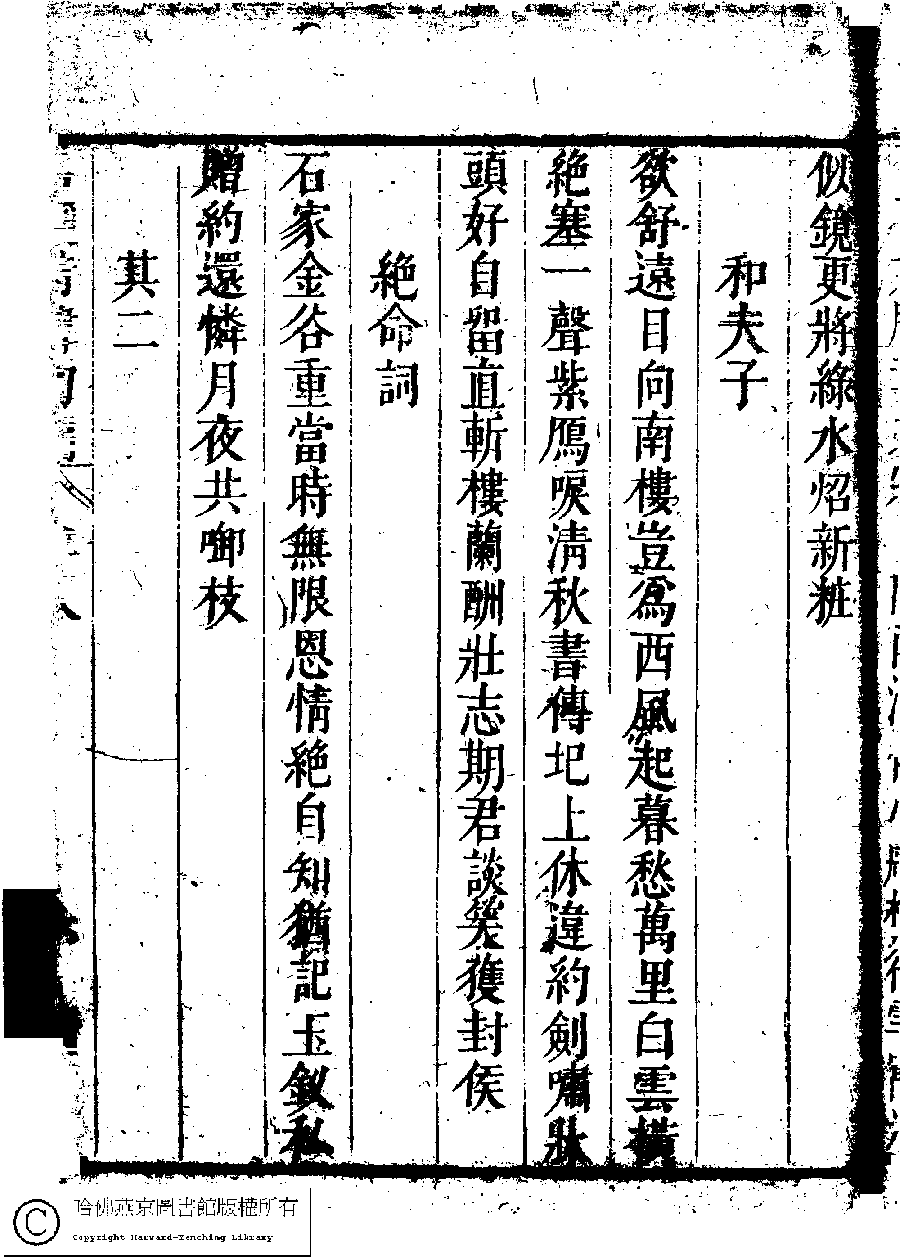 似鏡更將綠水炤新粧
和夫子
欲舒遠目向南樓豈爲西風起暮愁萬里白雲橫
絕塞一聲紫鴈唳清秋書傳圯上休違約劍嘯牀
頭好自留直斬樓蘭酬壯志期君談笑獲封侯
絕命詞
石家金谷重當時無限恩情絕自知猶記玉釵私
贈約還憐月夜共啣枝
其二
哈佛燕京圖書館版權所有
Copyright Harvard-Yenching Library